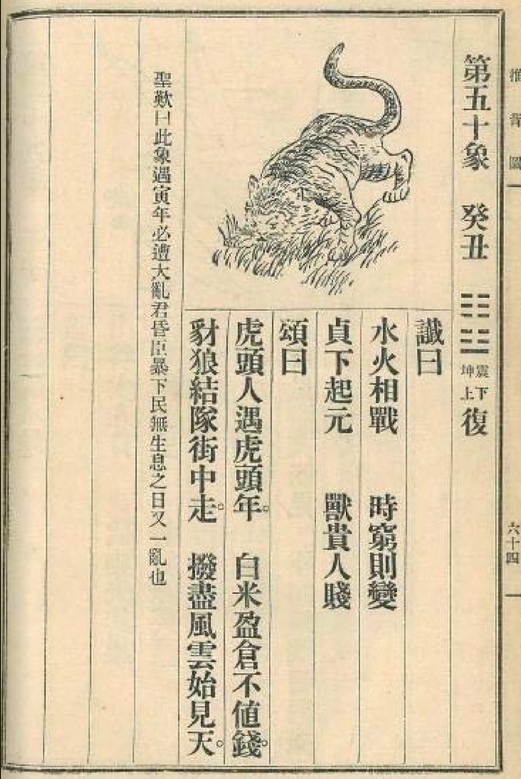 推背圖
六十四
第五十象 癸丑 ☷☳ 震下坤上 復
讖曰
水火相戰 時窮則變
貞下起元 獸貴人賤
頌曰
虎頭人遇虎頭年。 白米盈倉不值錢。
豺狼結隊街中走。 撥盡風雲始見天。
聖歎曰此象遇寅年必遭大亂君昏臣暴下民無生息之日又一亂也